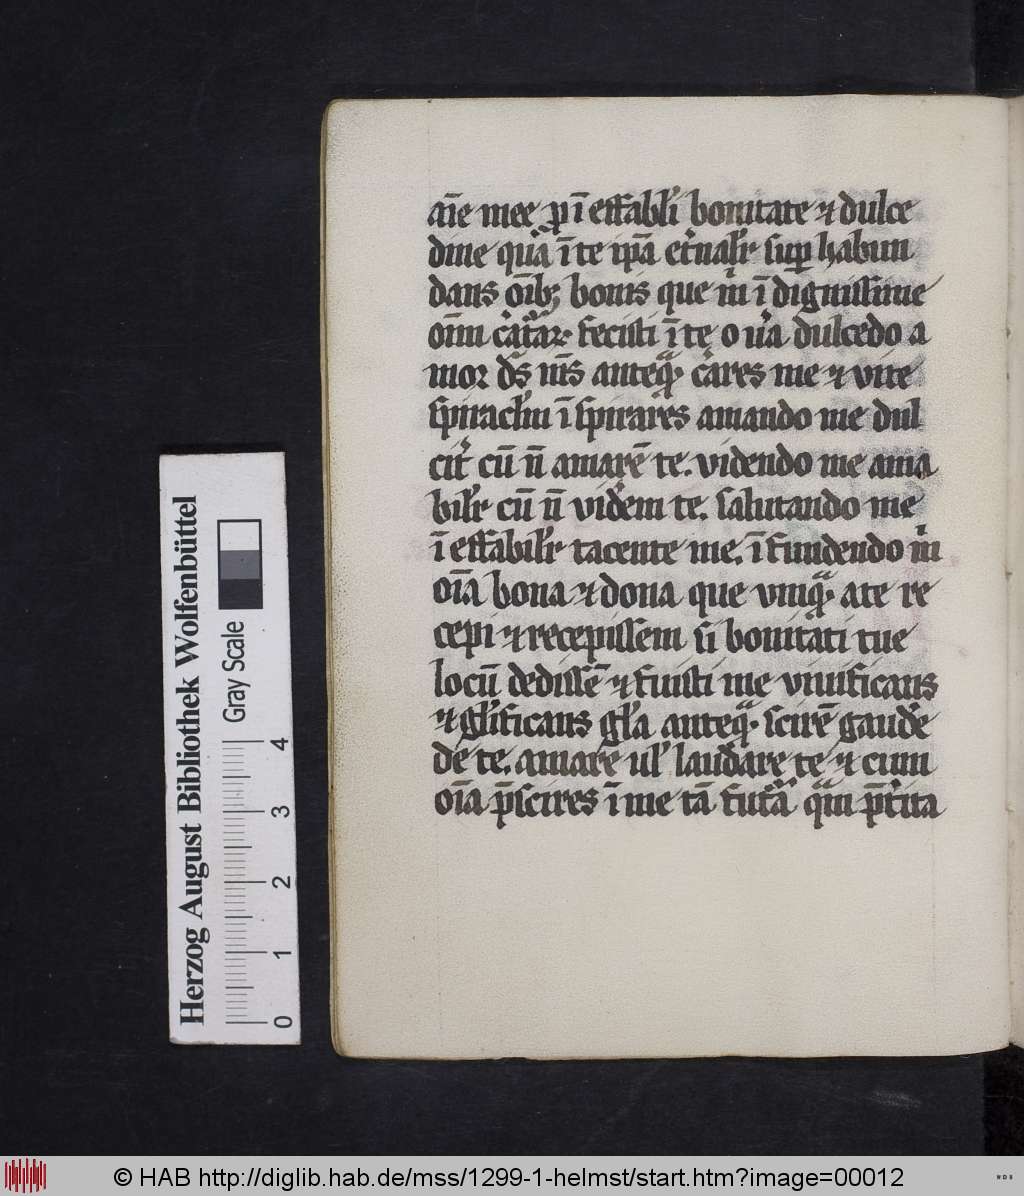 aīe mee ꝓ ī effabłi bonitate ⁊ dulce
dine quā ī te ip̄a et̓nalr̓ suꝑ habun
dans oībꝫ bonis que m̓ ī dignissime
oīm c̓at᷑aꝝ fecisti ī te o u̓a dulcedo a
mor ds̄ ms̄ anteqͣꝫ c̓ares me ⁊ vite
spiracl̓m ī spirares amando me dul
cit̓ cū n̄ amarē te. videndo me ama
bilr̓ cū n̄ vid̓em te. salutando me
ī effabilr̓ tacente me. ī fundendo m̓
oīa bona ⁊ dona que vnqͣꝫ a te re
cepi ⁊ recepissem si bonitati tue
locū dedissē ⁊ fuisti me viuificans
⁊ gl̓ificans gl̓a anteqͣꝫ scirē gaude
de te. amare ul̓ laudare te ⁊ cum
oīa p̄scires ī me tā fut᷑a qͣm p̄t̓ita
Herzog August Bibliothek Wolfenbüttel
Gray Scale
0 1 2 3 4
© HAB http://diglib.hab.de/mss/1299-1-helmst/start.htm?image=00012